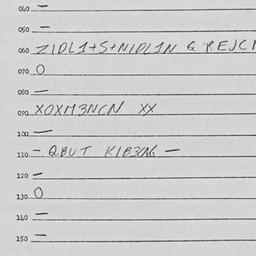 040 –
050 –
060 ZIDL1+S+NIDL1N & REJC
070 O
080 –
090 XOXM3NCN XX
100 –
110 – QBUT –
120 –
130 O
140 –
150 –